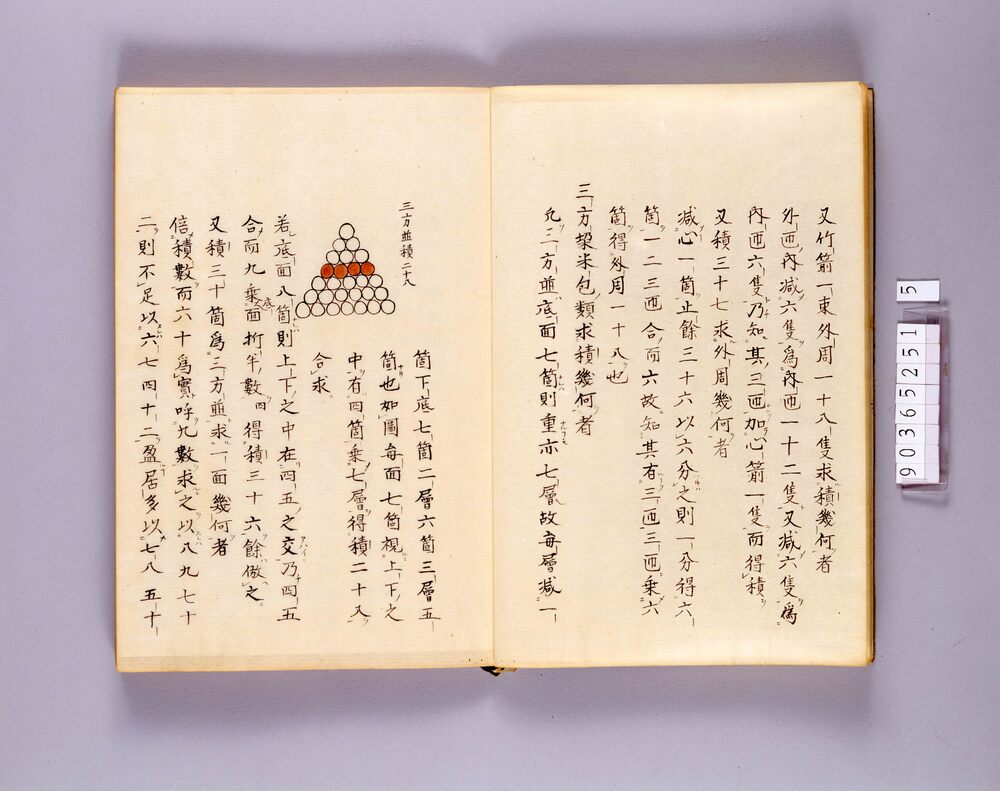 又竹箭一束外周一十八隻求積幾何者
外迊內減六隻爲內迊一十二隻又減六隻爲
內迊六隻乃知其三迊加心箭一隻而得積
又積三十七求外周幾何者
減心一箇止餘三十六以六分之則一分得六
箇一二三迊合而六故知其有三迊三迊乘六
箇得外周一十八也
三方架米包類求積幾何者
凡三方並底面七箇則重亦七層故每層減一
三方並積二十八
箇下底七箇二層六箇三層五
箇也如圖每面七箇視上下之
中有四箇乘七層得積二十八
合求
若底面八箇則上下之中在四五之交乃四五
合而九乘底面折半數四得積三十六餘倣之
又積三十箇爲三方並求一面幾何者
倍積數而六十爲實呼九數求之以八九七十
二則不足以六七四十二盈居多以七八五十
5
90365251